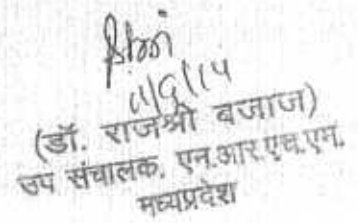 11/9/14
(डॉ. राजश्री बजाज)
उप संचालक, एन.आर.एच.एम.
मध्यप्रदेश